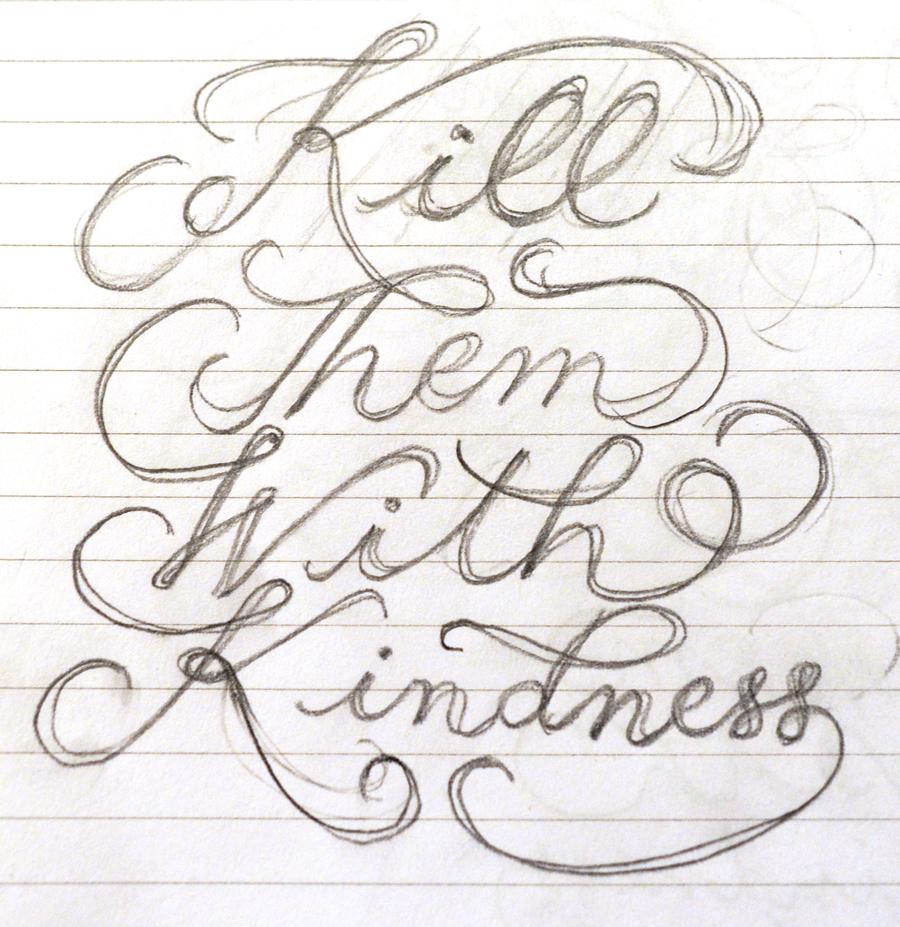 Kill
Them
With
Kindness